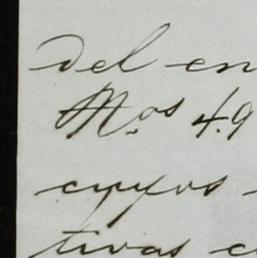 del en
Nos 4.9
cuyos
tivas c